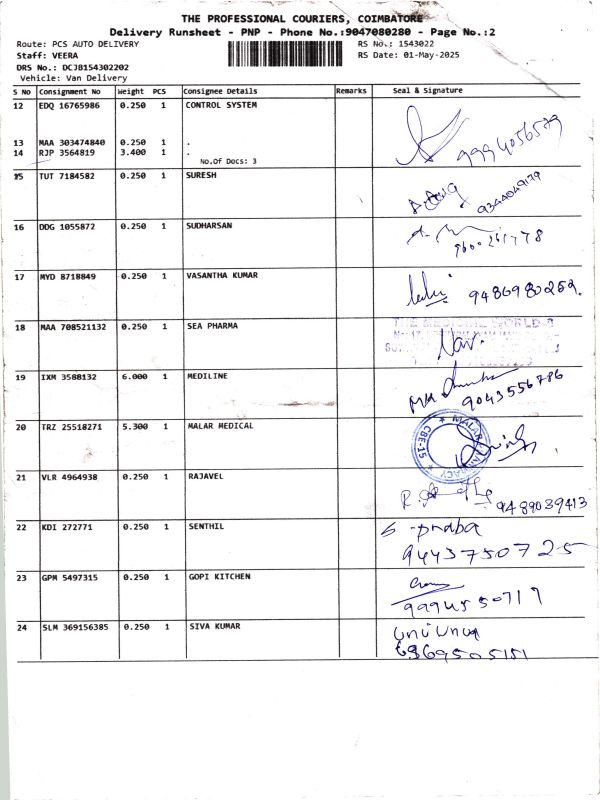 THE PROFESSIONAL COURIERS, COIMBATORE
Delivery Runsheet - PNP - Phone No.:9047080280 - Page No.:2
Route: PCS AUTO DELIVERY
RS No.: 1543022
Staff: VEERA
RS Date: 01-May-2025
DRS No.: DCJB154302202
Vehicle: Van Delivery
S No Consignment No Weight PCS Consignee Details Remarks Seal & Signature
12 EDQ 16765986 0.250 1 CONTROL SYSTEM
13 MAA 303474840 0.250 1 .
14 RJP 3564819 3.400 1 .
No.Of Docs: 3
9994056579
15 TUT 7184582 0.250 1 SURESH
9344049179
16 DDG 1055872 0.250 1 SUDHARSAN
9600261778
17 MYD 8718849 0.250 1 VASANTHA KUMAR
9486980262.
18 MAA 708521132 0.250 1 SEA PHARMA
THE MEDICAL WORLD
Nav.
19 IXM 3588132 6.000 1 MEDILINE
9043556786
20 TRZ 25518271 5.300 1 MALAR MEDICAL
MALAR PHARMACY CBE-15
21 VLR 4964938 0.250 1 RAJAVEL
9489089413
22 KDI 272771 0.250 1 SENTHIL
S-praba
9443750725
23 GPM 5497315 0.250 1 GOPI KITCHEN
9994550717
24 SLM 369156385 0.250 1 SIVA KUMAR
6369505151